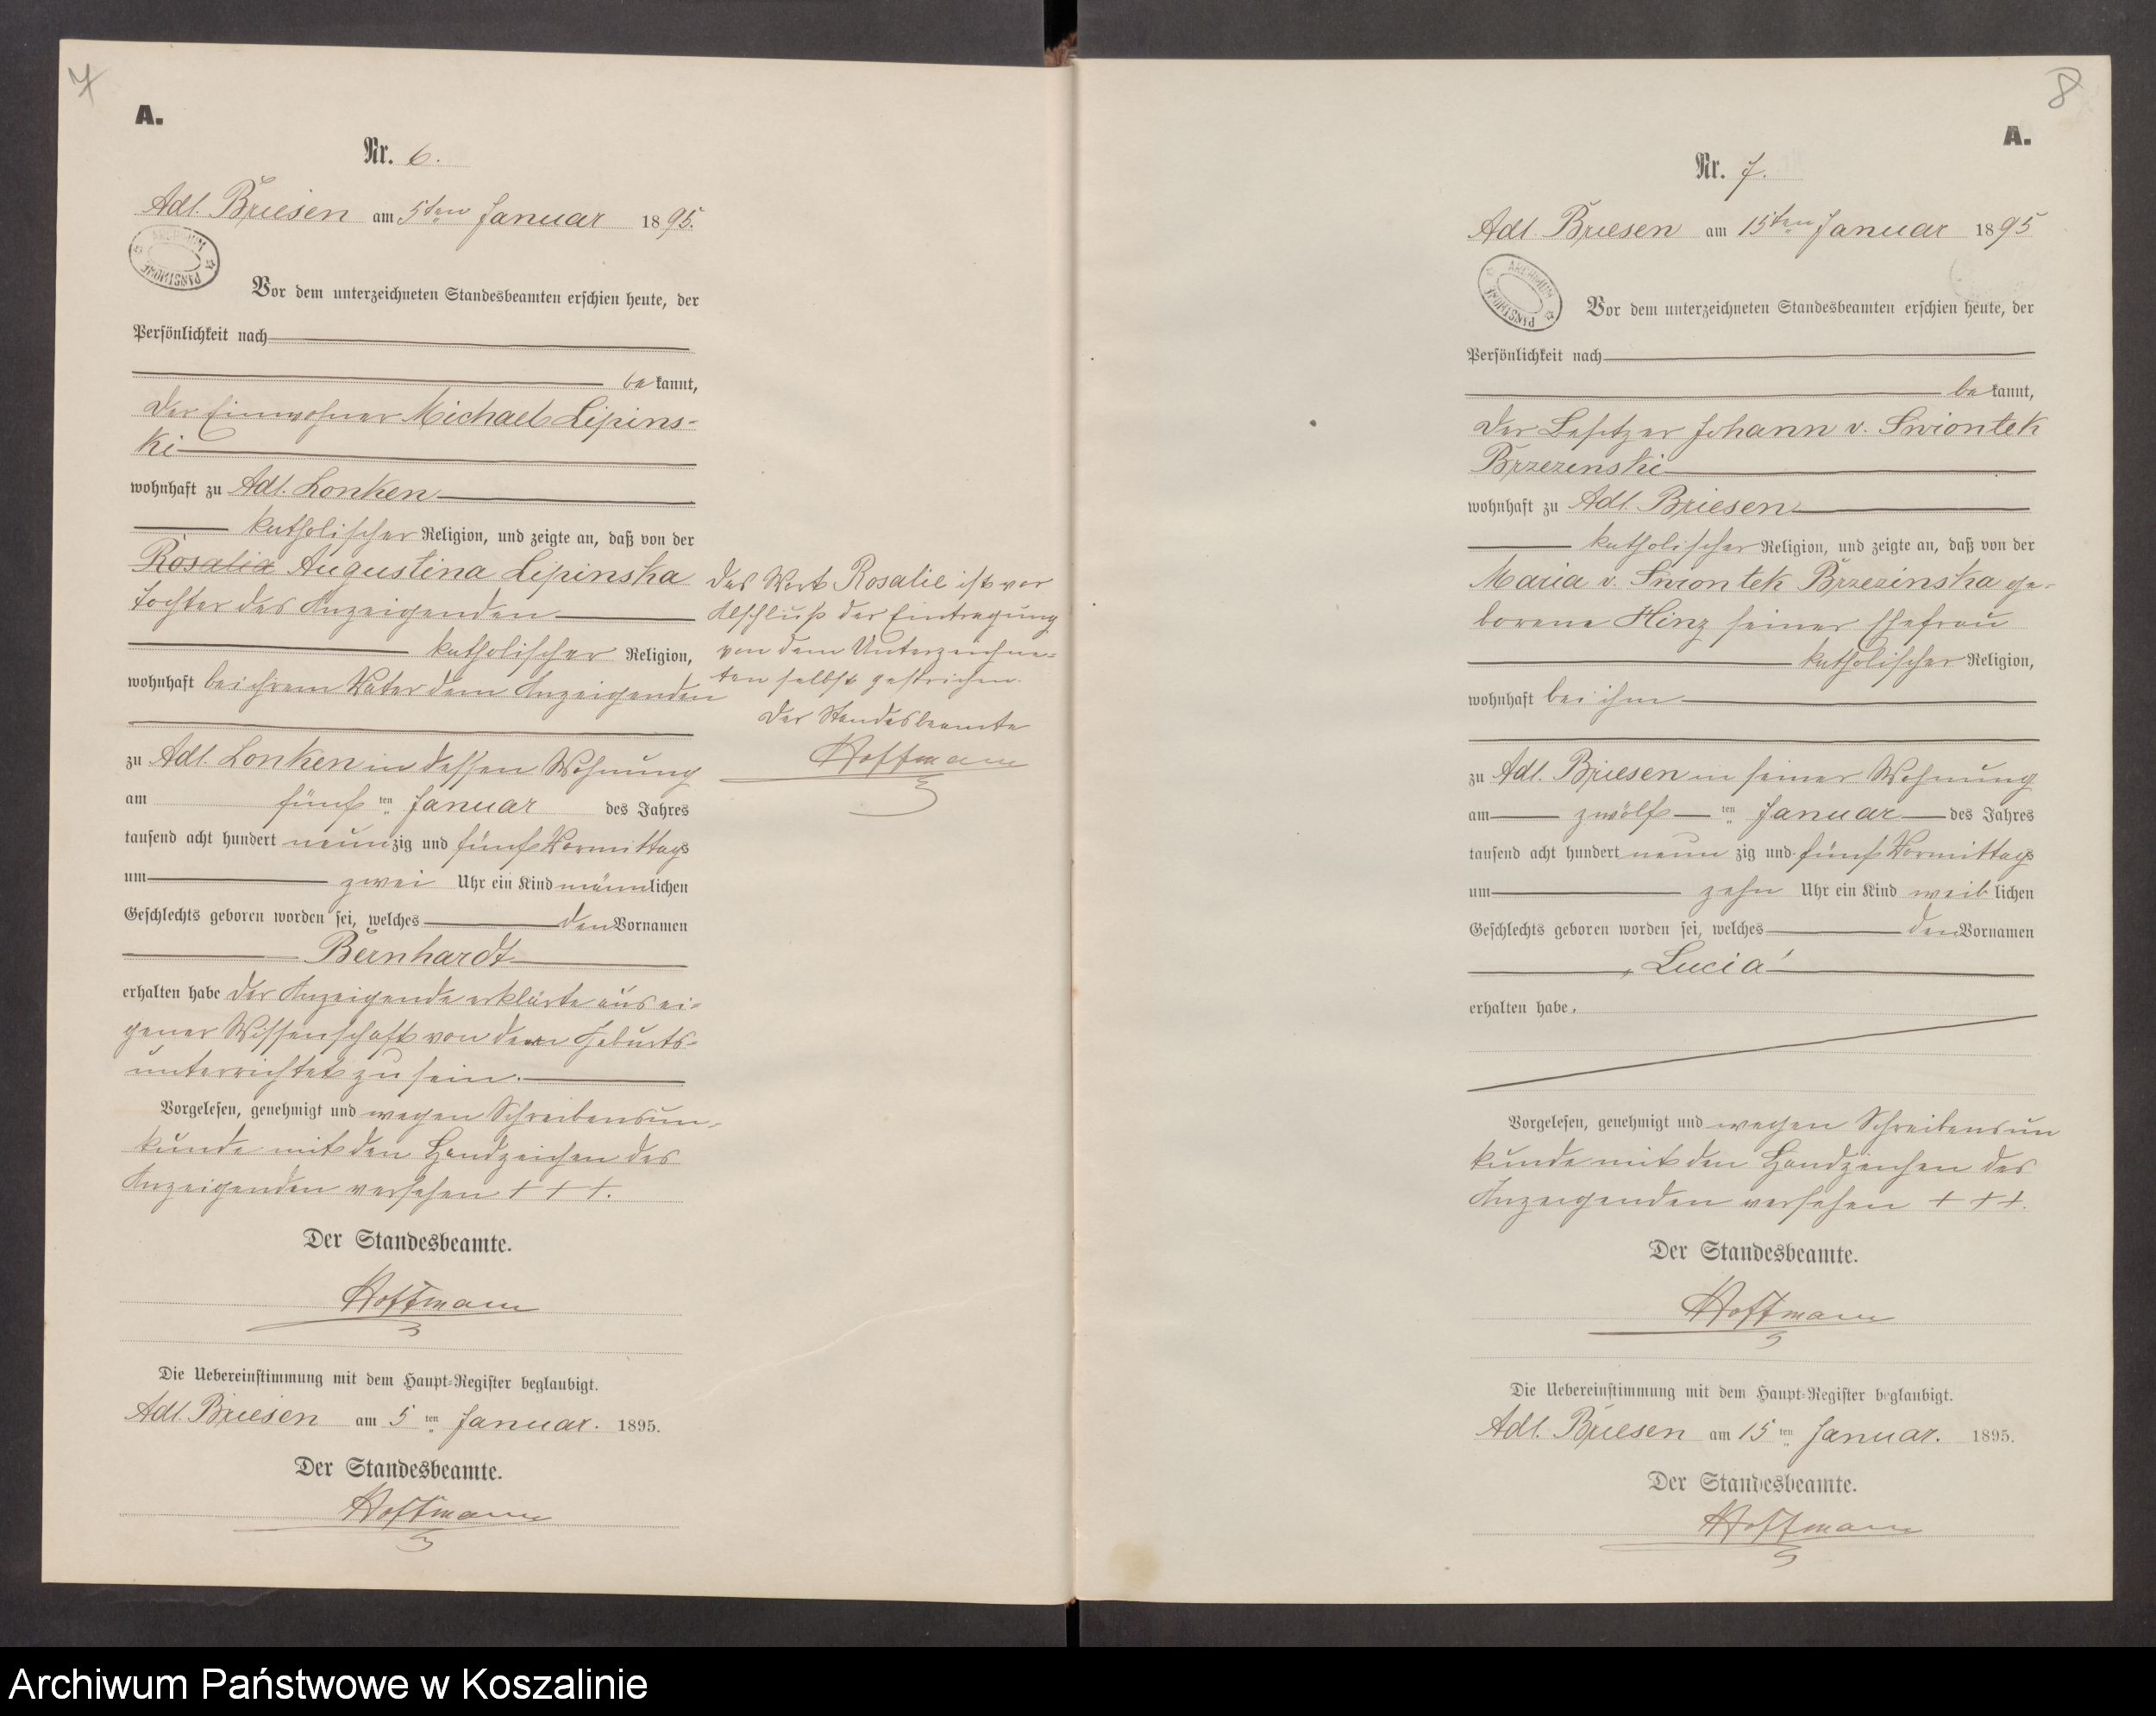 7
A.
Nr. 6.
Adl. Briesen am 5ten Januar 1895.
ARCHIWUM PAŃSTWOWE
Vor dem unterzeichneten Standesbeamten erschien heute, der
Persönlichkeit nach
bekannt,
der Einwohner Michael Lipins-
ki
wohnhaft zu Adl. Lonken
katholischer Religion, und zeigte an, daß von der
Rosalia Augustina Lipinska
Tochter des Anzeigenden
katholischer Religion,
wohnhaft bei ihrem Vater dem Anzeigenden
zu Adl. Lonken in dessen Wohnung
am fünf ten Januar des Jahres
tausend acht hundert neunzig und fünf Vormittags
um zwei Uhr ein Kind männlichen
Geschlechts geboren worden sei, welches den Vornamen
Bernhardt
erhalten habe der Anzeigende erklärte aus ei-
gener Wissenschaft von dem Geburts-
unterrichtet zu sein.
Vorgelesen, genehmigt und wegen Schreibensun-
kunde mit den Handzeichen des
Anzeigenden versehen + + +.
Der Standesbeamte.
Hoffmann
Die Uebereinstimmung mit dem Haupt-Register beglaubigt.
Adl. Briesen am 5 ten Januar. 1895.
Der Standesbeamte.
Hoffmann
Das Wort Rosalie ist vor
Abschluß der Eintragung
von dem Unterzeichne-
ten selbst gestrichen.
Der Standesbeamte
Hoffmann
8
A.
Nr. 7.
Adl. Briesen am 15ten Januar 1895
ARCHIWUM PAŃSTWOWE
Vor dem unterzeichneten Standesbeamten erschien heute, der
Persönlichkeit nach
bekannt,
der Besitzer Johann v. Swiontek
Brzezinski
wohnhaft zu Adl. Briesen
katholischer Religion, und zeigte an, daß von der
Maria v. Swiontek Brzezinska ge-
borene Hinz seiner Ehefrau
katholischer Religion,
wohnhaft bei ihm
zu Adl. Briesen in seiner Wohnung
am zwölf ten Januar des Jahres
tausend acht hundert neun zig und fünf Vormittags
um zehn Uhr ein Kind weiblichen
Geschlechts geboren worden sei, welches den Vornamen
„Lucia“
erhalten habe.
Vorgelesen, genehmigt und wegen Schreibensun
kunde mit den Handzeichen des
Anzeigenden versehen + + +.
Der Standesbeamte.
Hoffmann
Die Uebereinstimmung mit dem Haupt-Register beglaubigt.
Adl. Briesen am 15 ten Januar. 1895.
Der Standesbeamte.
Hoffmann
Archiwum Państwowe w Koszalinie